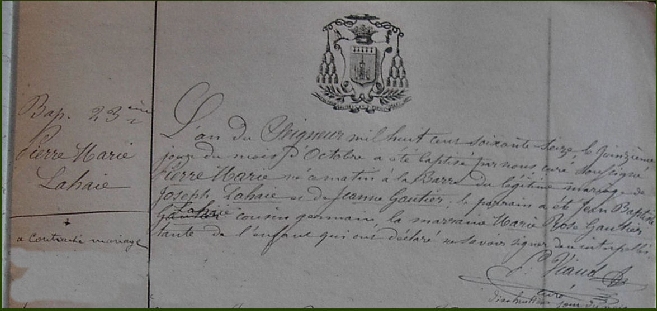 Bap. 23ième
Pierre Marie
Lahaie
+
a contracté mariage
L'an du Seigneur mil huit cent soixante seize le quinzième
jour du mois d'Octobre a été baptisé par nous curé soussigné
Pierre Marie né a matin à la Barre du légitime mariage de
Joseph Lahaie et de Jeanne Gautier, le parrain a été Jean Baptiste
Lahaie cousin germain, la marraine Marie Rose Gautier
tante de l'enfant qui ont déclaré ne savoir signer
Viaud
curé